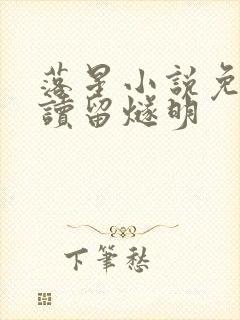 落星小說免
讀留燧明
下筆愁